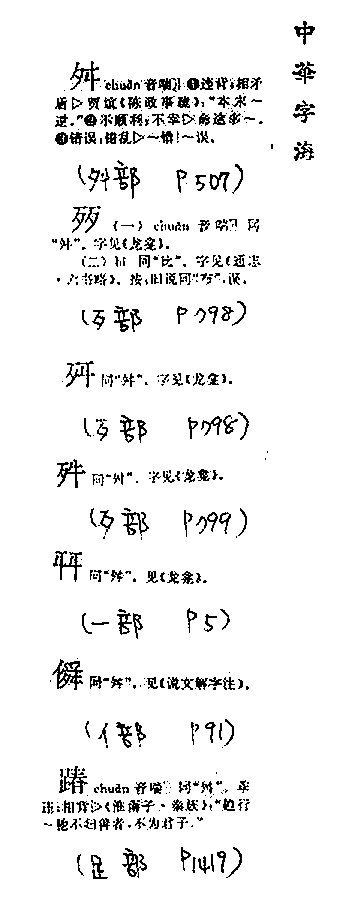 中華字海
舛 chuǎn 音喘 ❶违背;相矛
盾▷贾谊《陈政事疏》:“本末~
逆。”❷不顺利;不幸▷命途多~。
❸错误;错乱▷~错|~误。
(舛部 P507)
(一) chuǎn 音喘 同
“舛”。字见《龙龛》。
(二) bǐ 同“比”。字见《通志
·六书略》。按:旧说同“万”,误。
(歹部 P798)
同“舛”。字见《龙龛》。
(歹部 P798)
同“舛”。字见《龙龛》。
(歹部 P799)
同“舛”。见《龙龛》。
(一部 P5)
僢 同“舛”。见《说文解字注》。
(亻部 P91)
踳 chuǎn 音喘 同“舛”。乖
违;相背▷《淮南子·泰族》:“趋行
~驰不归善者,不为君子。”
(足部 P1419)